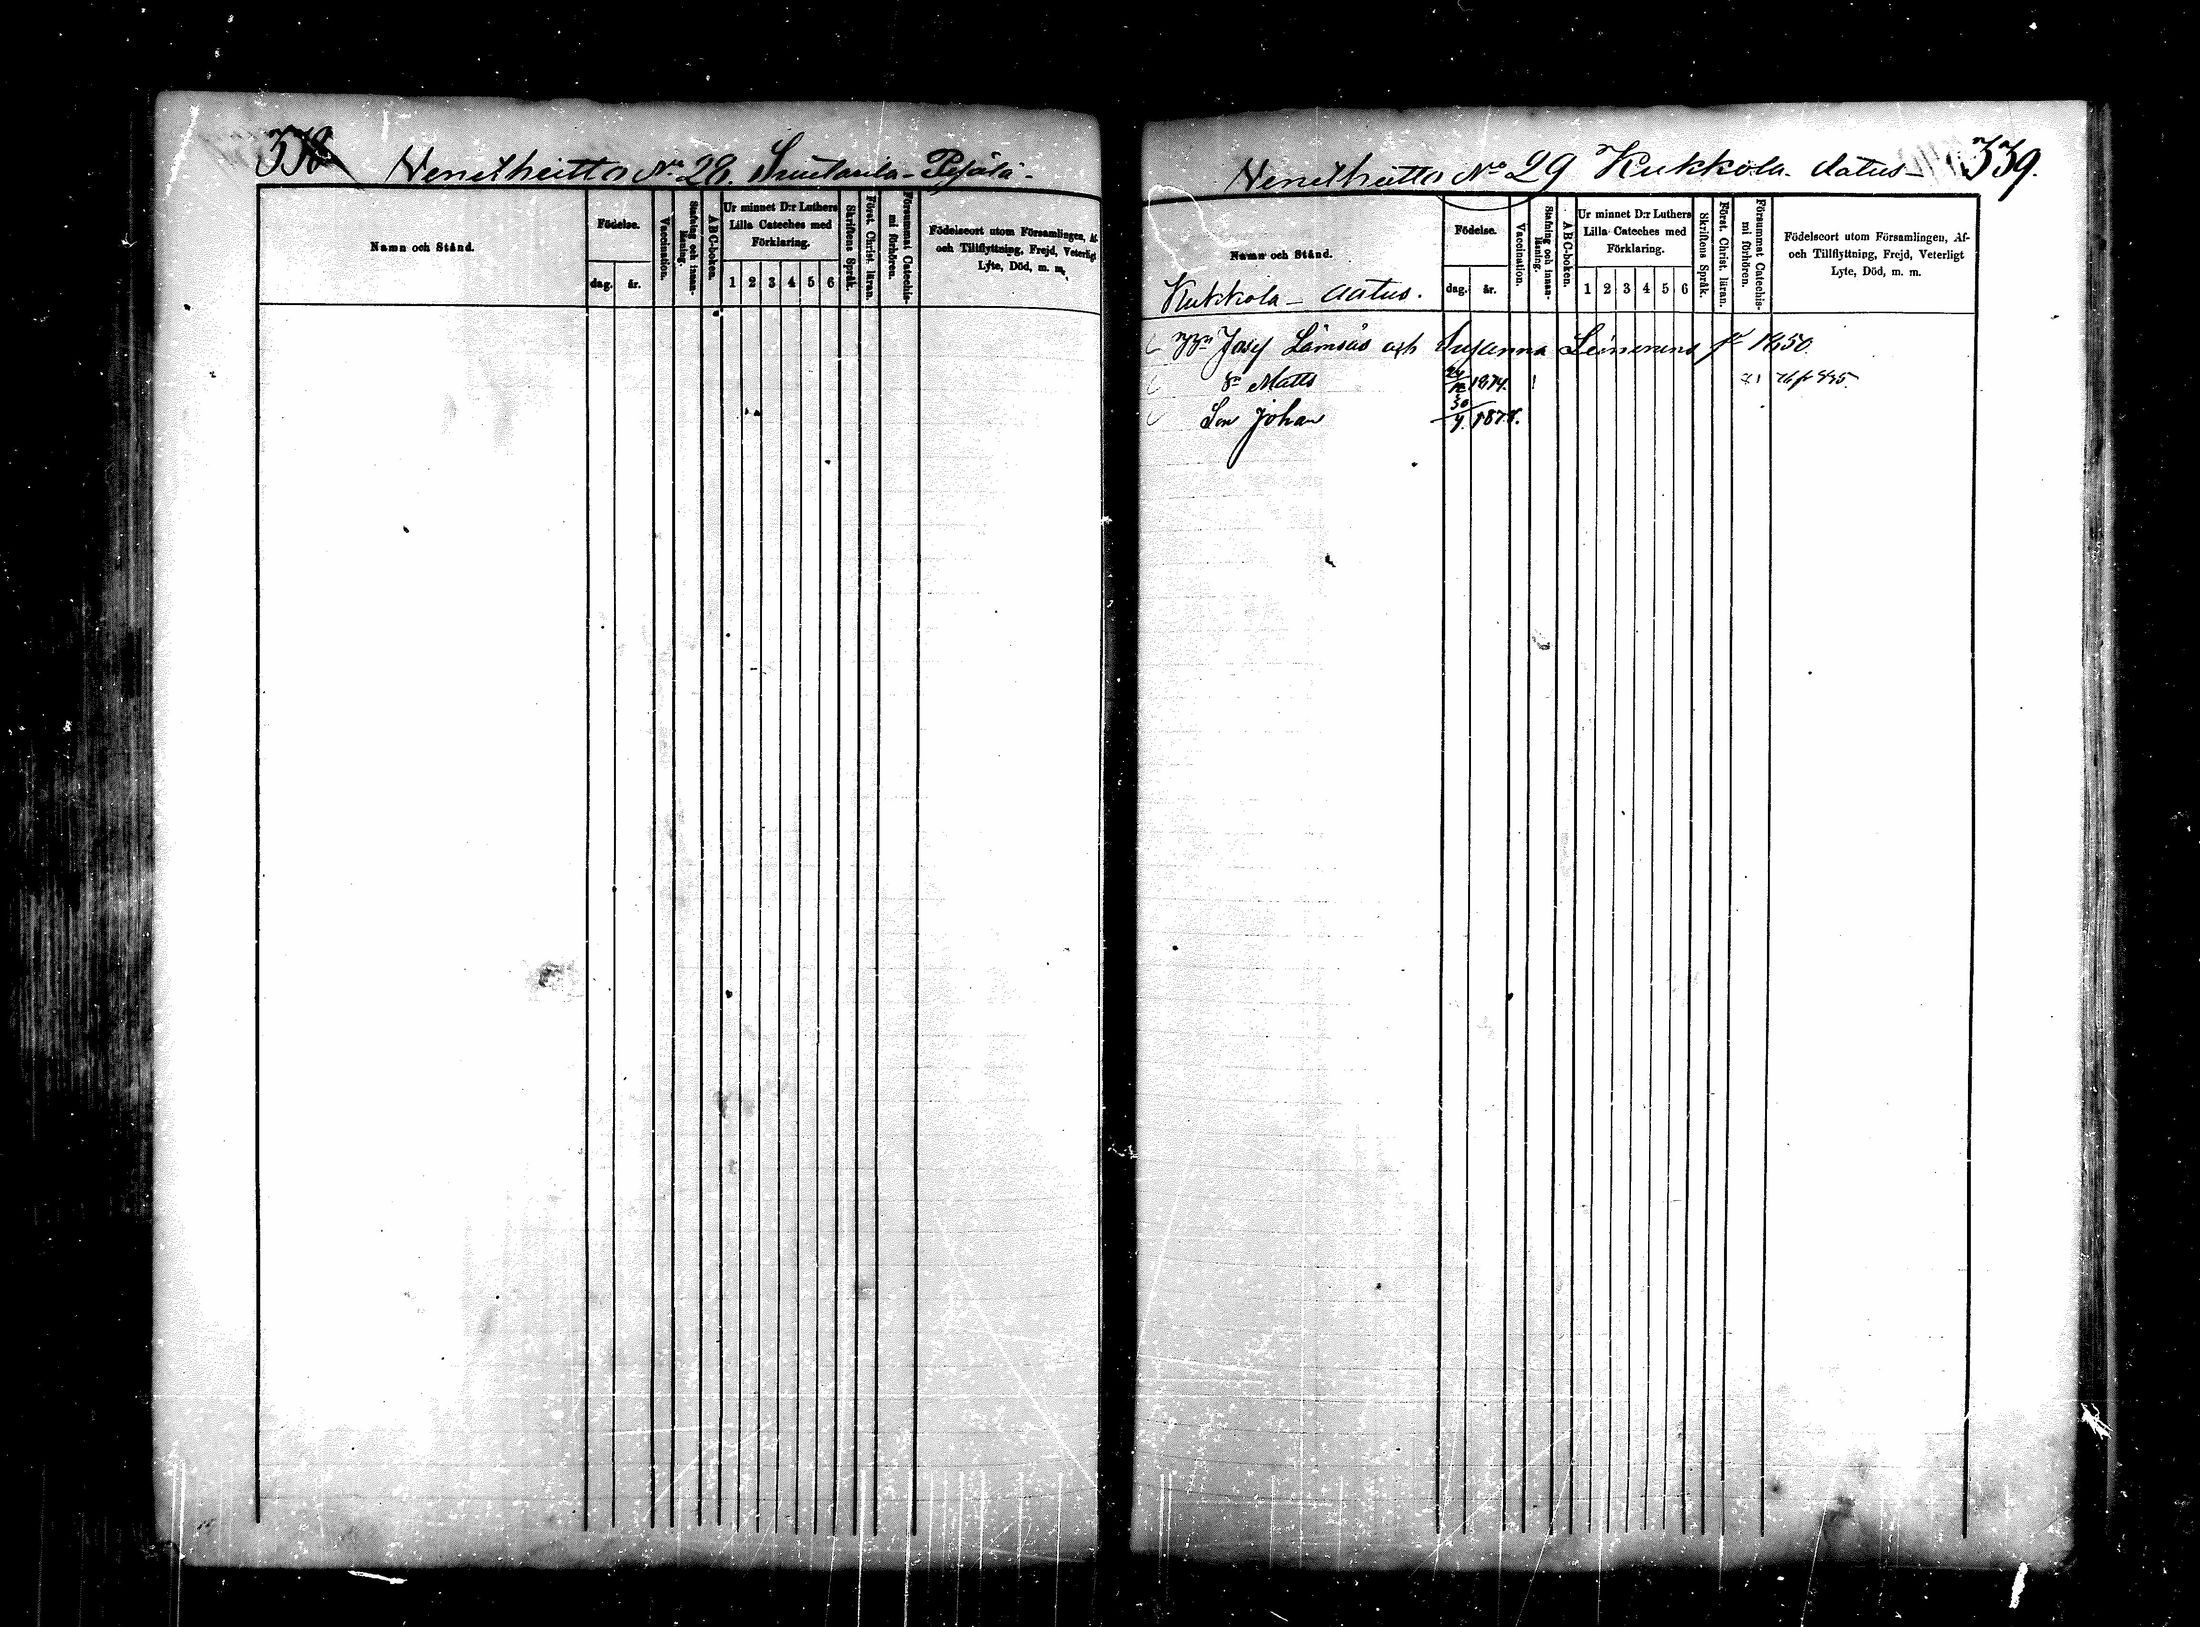 338
Venetheitto No 28.
Namn och Stånd.
Födelse.
dag. år.
Vaccination.
Stafning och innan-läsning.
ABC-boken.
Ur minnet D:r Luthers
Lilla Cateches med
Förklaring.
1 2 3 4 5 6
Skriftens Språk.
Först. Christ. läran.
Försummat Catechis-
mi förhören.
Födelseort utom Församlingen, Af-
och Tillflyttning, Frejd, Veterligt
Lyte, Död, m. m.
Venetheitto No 29 Kukkola - Aatus - 339.
Namn och Stånd.
Kukkola - Aatus.
Födelse.
dag. år.
Vaccination.
Stafning och innan-läsning.
ABC-boken.
Ur minnet D:r Luthers
Lilla Cateches med
Förklaring.
1 2 3 4 5 6
Skriftens Språk.
Först. Christ. läran.
Försummat Catechis-
mi förhören.
Födelseort utom Församlingen, Af-
och Tillflyttning, Frejd, Veterligt
Lyte, Död, m. m.
Josef Lämsäs och Susanna
Sn Matts 1874.
Son Johan 30/9. 1878.